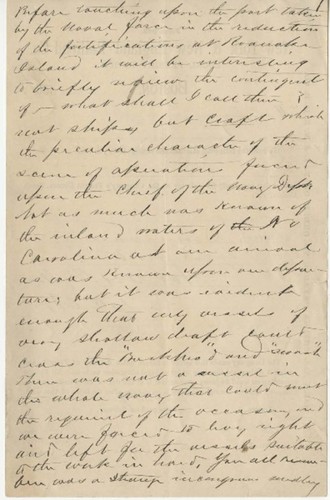 Before touching upon the part taken
by the Naval force in the reduction
of the fortifications at Roanoke
Island it will be interesting
to briefly review the contingent
of – what shall I call them?
not ships, but craft which
the peculiar character of the
scene of operations forced
upon the Chief of the Navy Dept.
Not as much was known of
the inland waters of the No
Carolina at our arrival
as was known upon our depar-
ture; but it was evident
enough that only vessels of
very shallow draft could
cross the "Bulkhead" and "swash"
There was not a vessel in
the whole navy that could meet
the requirement of the occasion, and
we were forced to buy right
and left for the vessels suitable
to the work in hand, You all remem-
ber a strange incongruous medley